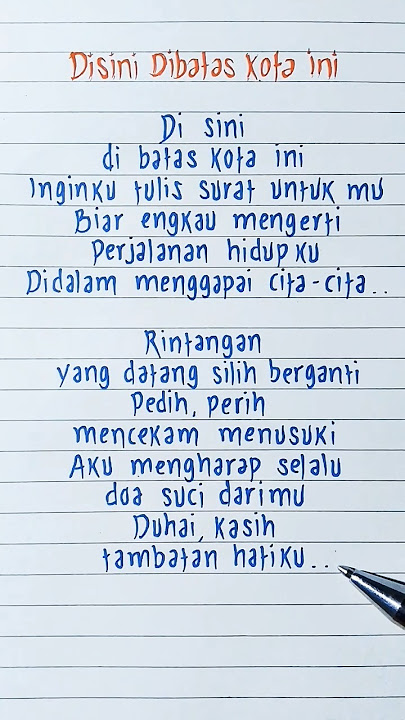 Disini Dibatas Kota ini
Di sini
di batas kota ini
Inginku tulis surat untuk mu
Biar engkau mengerti
Perjalanan hidup ku
Didalam menggapai cita-cita..
Rintangan
yang datang silih berganti
Pedih, perih
mencekam menusuki
Aku mengharap selalu
doa suci darimu
Duhai, kasih
tambatan hatiku...